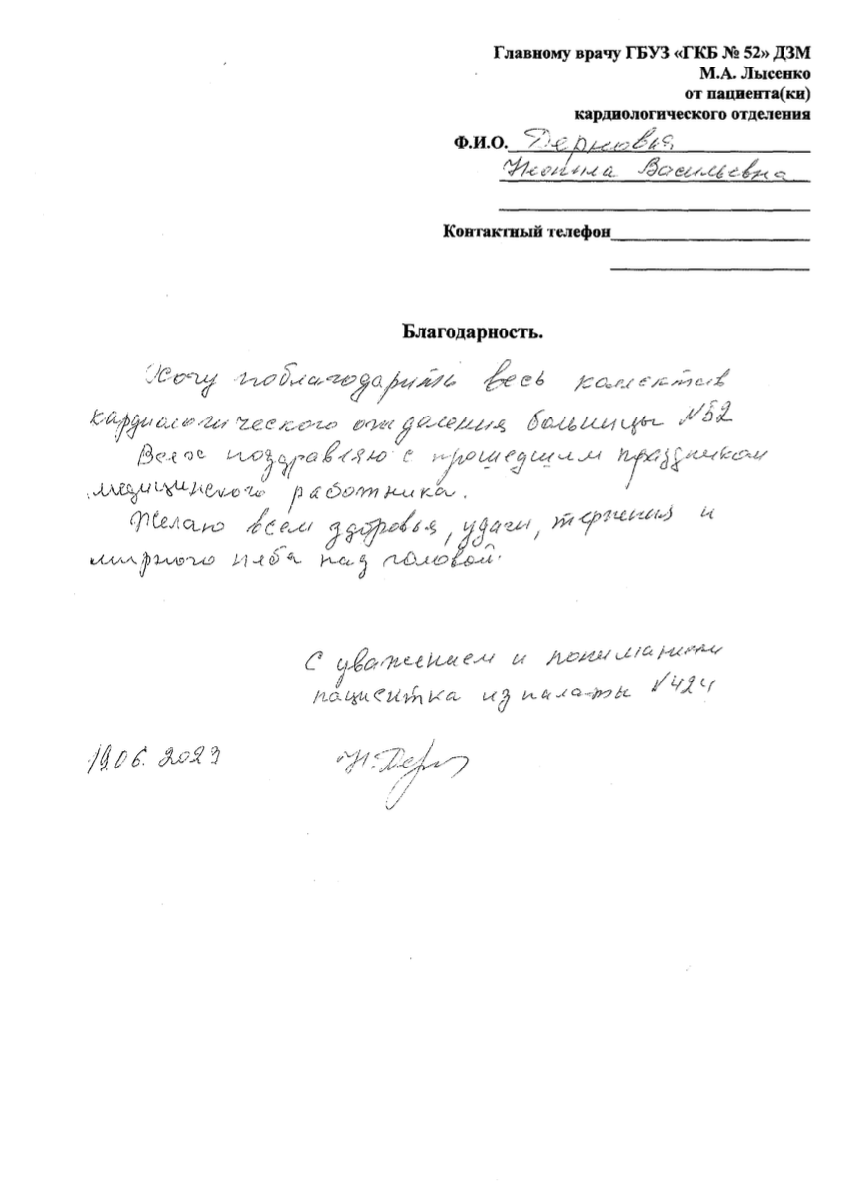 Главному врачу ГБУЗ «ГКБ № 52» ДЗМ
М.А. Лысенко
от пациента(ки)
кардиологического отделения
Ф.И.О. Дерновая
Неонила Васильевна
Контактный телефон
Благодарность.
Хочу поблагодарить весь коллектив
кардиологического отделения больницы №52
Всех поздравляю с прошедшим праздником
медицинского работника.
Желаю всем здоровья, удачи, терпения и
мирного неба над головой.
С уважением и пониманием
пациентка из палаты №424
19.06.2023
Н.Дер